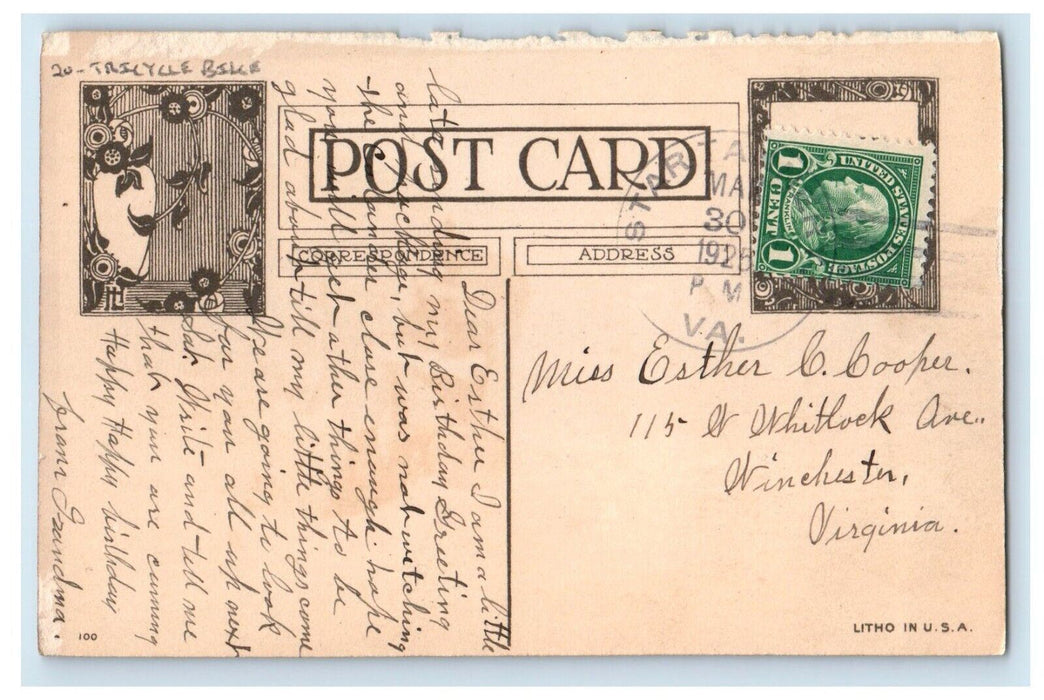 20- TRICYCLE BIKE
POST CARD
CORRESPONDENCE
ADDRESS
STAR TA
MA
30
1926
P M
VA.
UNITED STATES POSTAGE
FRANKLIN
1 CENT 1
Dear Esther I am a little
late sending my Birthday Greeting
and package, but was not witching
the Calander close enough hope
you will get other things to be
glad about till my little things come
We are going to look
for you all up next
Sat. Write and tell me
that you are cuming
Happy Happy birthday
from Grandma.
Miss Esther C. Cooper.
115 W Whitlock Ave.,
Winchester,
Virginia.
100
LITHO IN U.S.A.